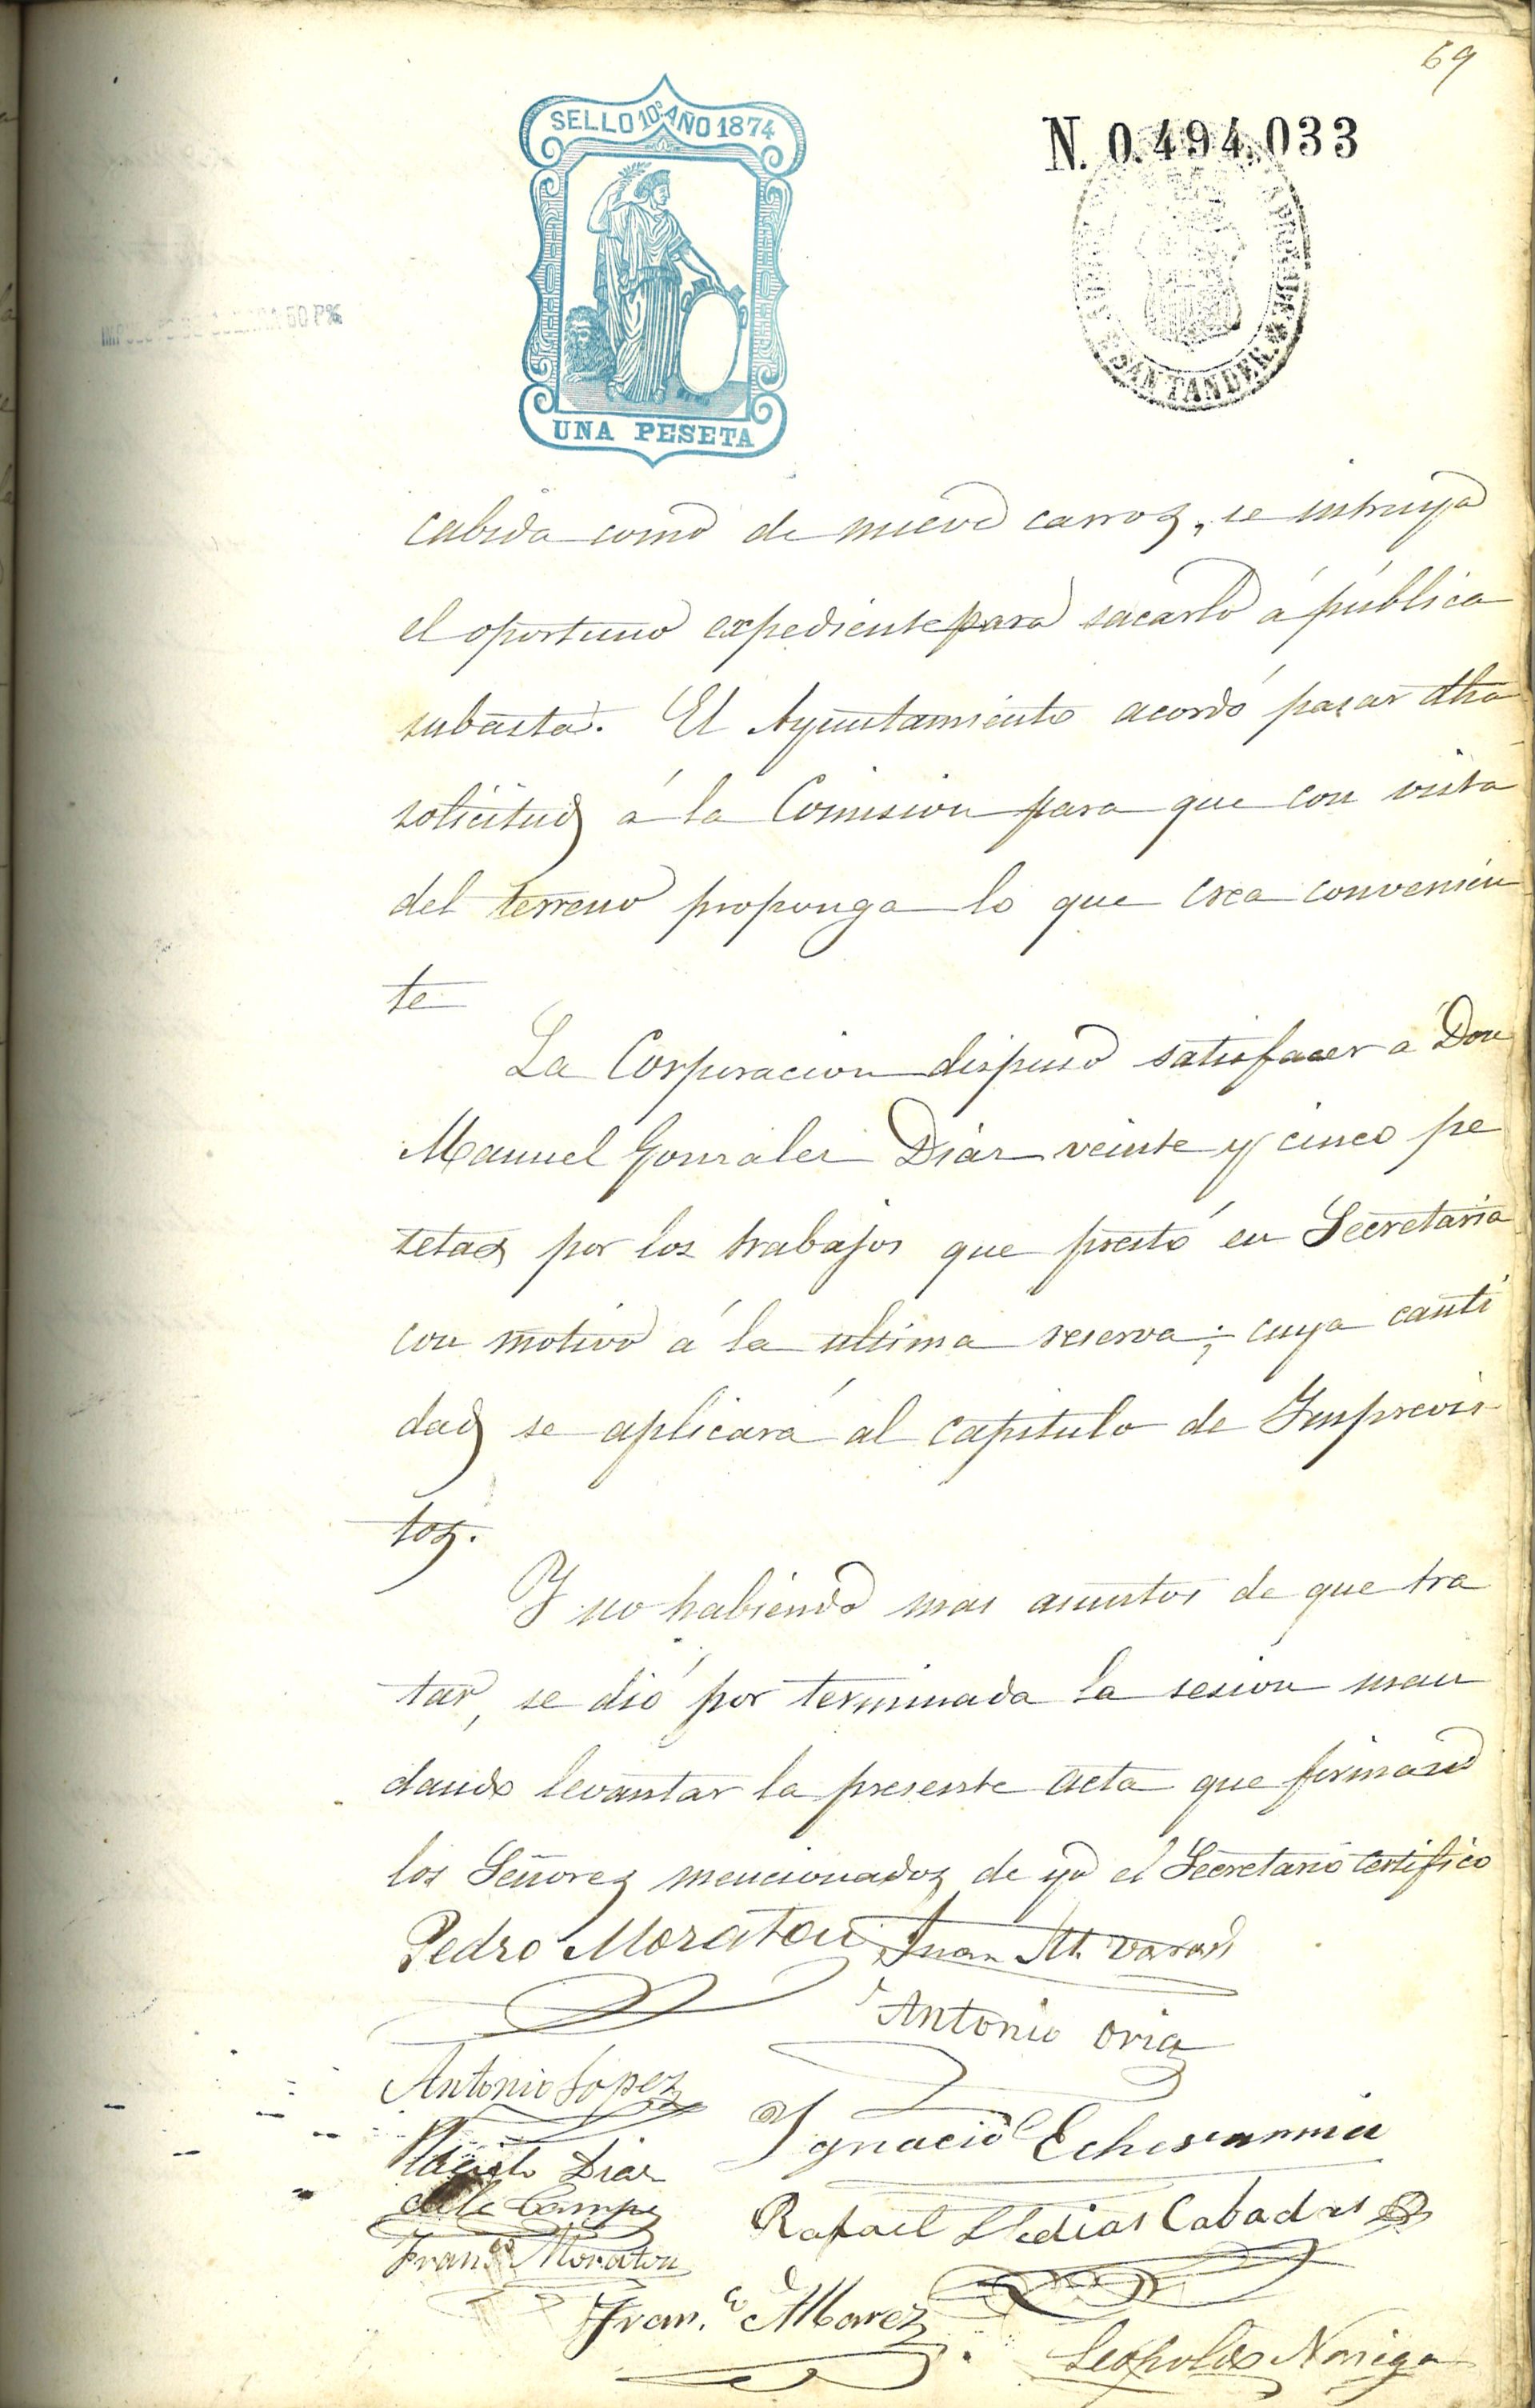 69
SELLO 10º AÑO 1874
N. 0.494,033
UNA PESETA
SANTANDER.
50 P%
cabida como de nueve carros, se intruya
el oportuno expediente para sacarlo á pública
subasta. El Ayuntamiento acordó pasar dha
solicitud á la Comision para que con vista
del terreno proponga lo que crea convenien
te
La Corporacion dispuso satisfacer á Don
Manuel Gonzalez Diaz veinte y cinco pe
setas por los trabajos que prestó en Secretaria
con motivo á la ultima reserva; cuya canti
dad se aplicará al capitulo de Imprevis
tos.
Y no habiendo mas asuntos de que tra
tar, se dió por terminada la sesion man
dando levantar la presente acta que firman
los Señores mencionados de yo el Secretario certifico
Pedro Moraton Juan M.
Antonio Oria
Antonio Lopez
Ignacio Echevarria
Diaz
de la Campa
Rafael Cabadas
Fran.co Moraton
Fran.co
Leopoldo Noriega